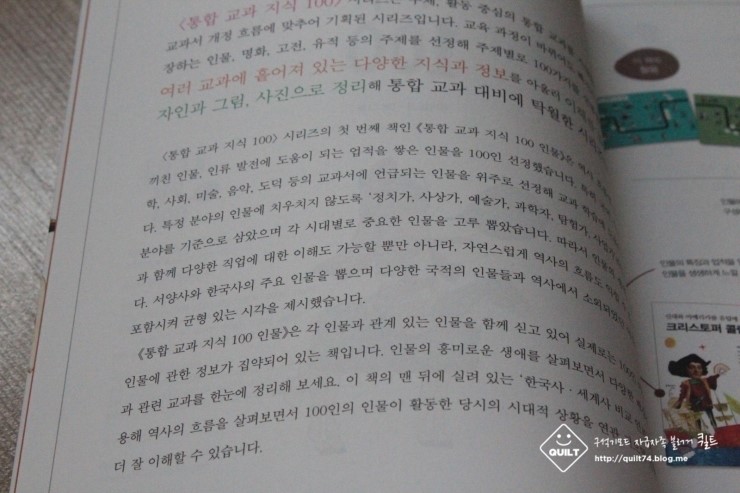 〈통합 교과 지식 100〉 시리즈는 주제, 활동 중심의 통합 교과를
교과서 개정 흐름에 맞추어 기획된 시리즈입니다. 교육 과정이 바뀌어도
장하는 인물, 명화, 고전, 유적 등의 주제를 선정해 주제별로 100가지를
여러 교과에 흩어져 있는 다양한 지식과 정보를 아울러
자인과 그림, 사진으로 정리해 통합 교과 대비에 탁월한
〈통합 교과 지식 100〉 시리즈의 첫 번째 책인 《통합 교과 지식 100 인물》은 역사
끼친 인물, 인류 발전에 도움이 되는 업적을 쌓은 인물을 100인 선정했습니다. 특히
학, 사회, 미술, 음악, 도덕 등의 교과서에 언급되는 인물을 위주로 선정해 교과 학습에
다. 특정 분야의 인물에 치우치지 않도록 '정치가, 사상가, 예술가, 과학자, 탐험가,
분야를 기준으로 삼았으며 각 시대별로 중요한 인물을 고루 뽑았습니다. 따라서 인물의
과 함께 다양한 직업에 대한 이해도 가능할 뿐만 아니라, 자연스럽게 역사의 흐름도
다. 서양사와 한국사의 주요 인물을 뽑으며 다양한 국적의 인물들과 역사에서 소외되었던
포함시켜 균형 있는 시각을 제시했습니다.
《통합 교과 지식 100 인물》은 각 인물과 관계 있는 인물을 함께 싣고 있어 실제로는
인물에 관한 정보가 집약되어 있는 책입니다. 인물의 흥미로운 생애를 살펴보면서 다양한
과 관련 교과를 한눈에 정리해 보세요. 이 책의 맨 뒤에 실려 있는 '한국사·세계사 비교
용해 역사의 흐름을 살펴보면서 100인의 인물이 활동한 당시의 시대적 상황을
더 잘 이해할 수 있습니다.
인물의 특징과 업적을
인물을 생생하게 느낄
크리스토퍼
QUILT
구석기모드 자급자족 블로거 퀼트
http://quilt74.blog.me